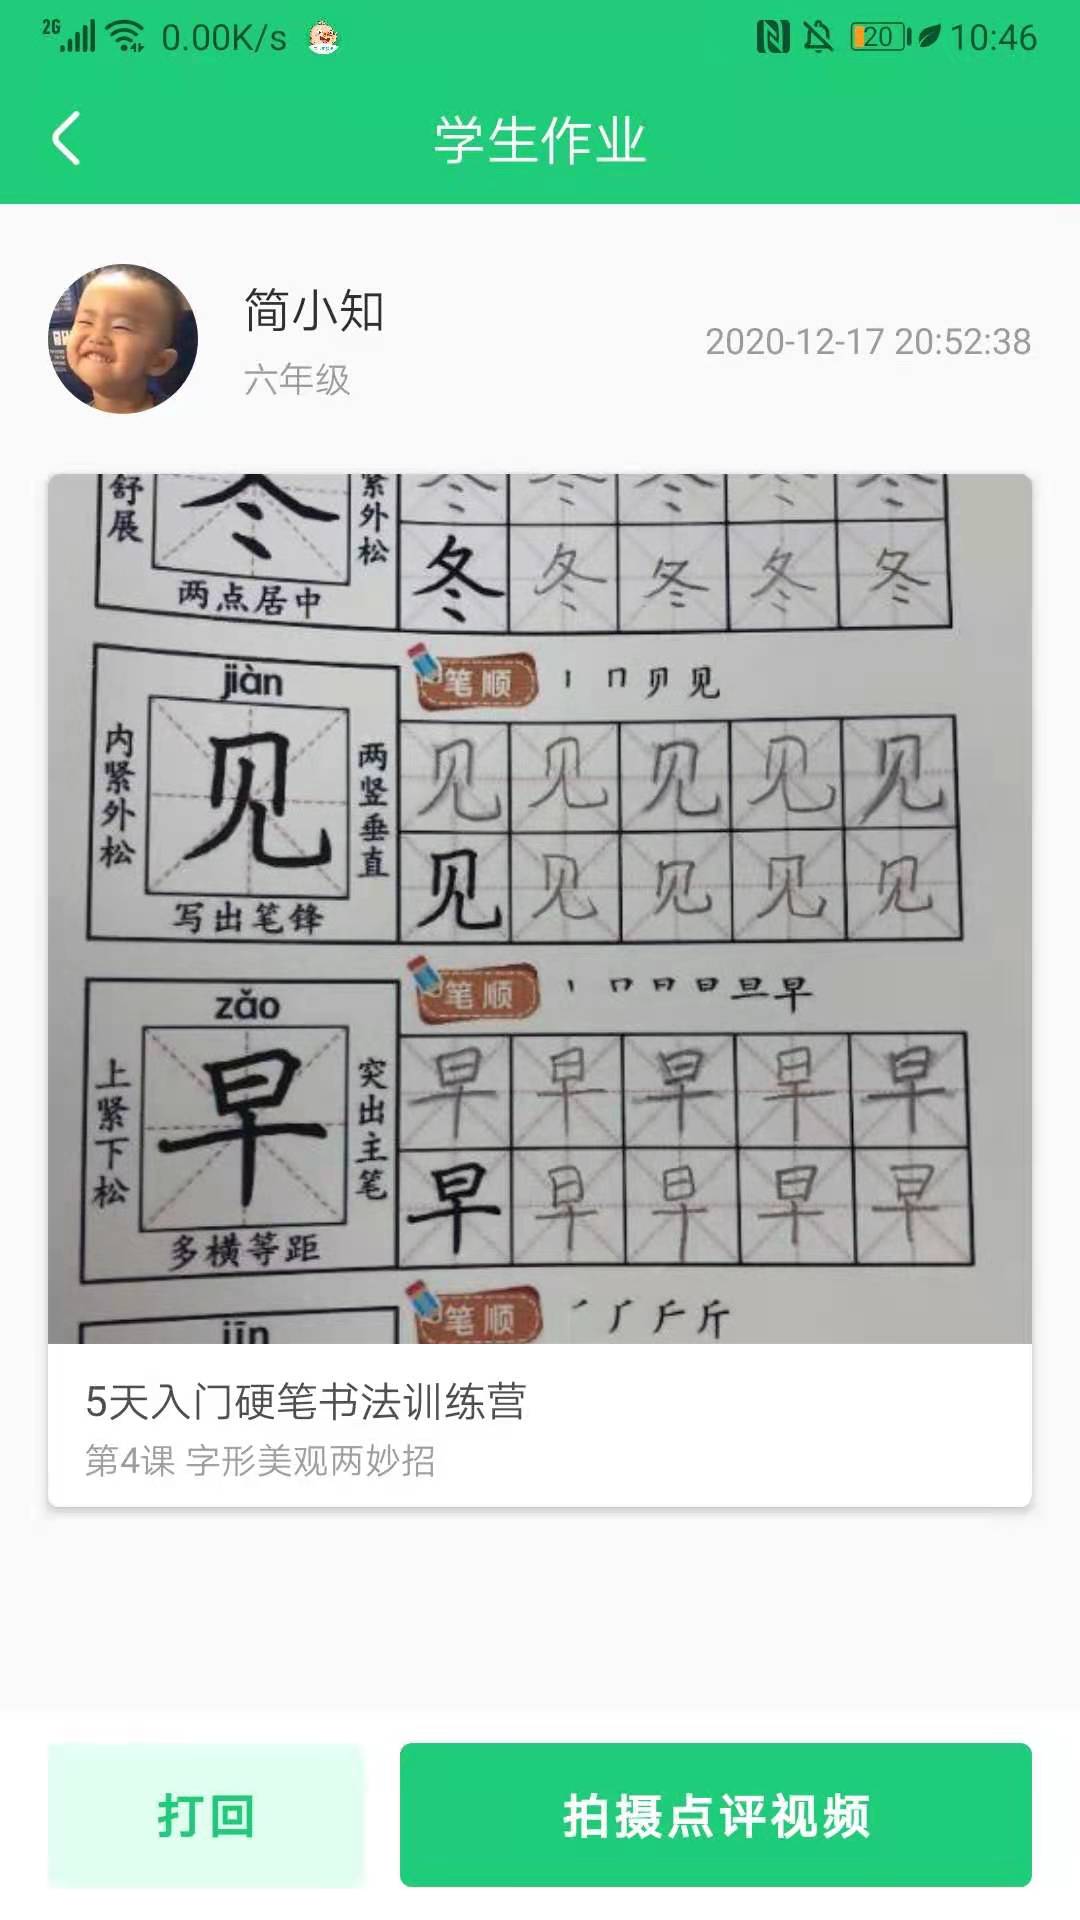 2G 0.00K/s 20 10:46
学生作业
简小知
六年级
2020-12-17 20:52:38
舒展
冬
紧外松
两点居中
冬 冬 冬 冬 冬
冬 冬 冬 冬 冬
jiàn
内紧外松
见
两竖垂直
写出笔锋
笔顺
丨 冂 贝 见
见 见 见 见 见
见 见 见 见 见
zǎo
上紧下松
早
突出主笔
多横等距
笔顺
丨 冂 日 日 旦 早
早 早 早 早 早
早 早 早 早 早
jīn
笔顺
㇒ 厂 斤 斤
5天入门硬笔书法训练营
第4课 字形美观两妙招
打回
拍摄点评视频